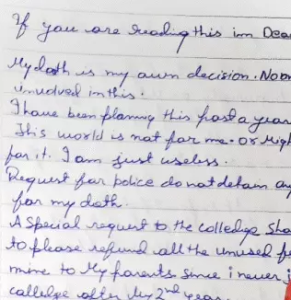 If you are reading this im Dea
My death is my own decision. No on
involved in this.
I have been planing this past a year
This world is not for me. Or Migh
for it. I am just useless.
Request for police do not detain any
for my death.
A Special request to the colledge Sha
to please refund all the unused fe
mine to My parents since i never i
colledge after My 2nd year